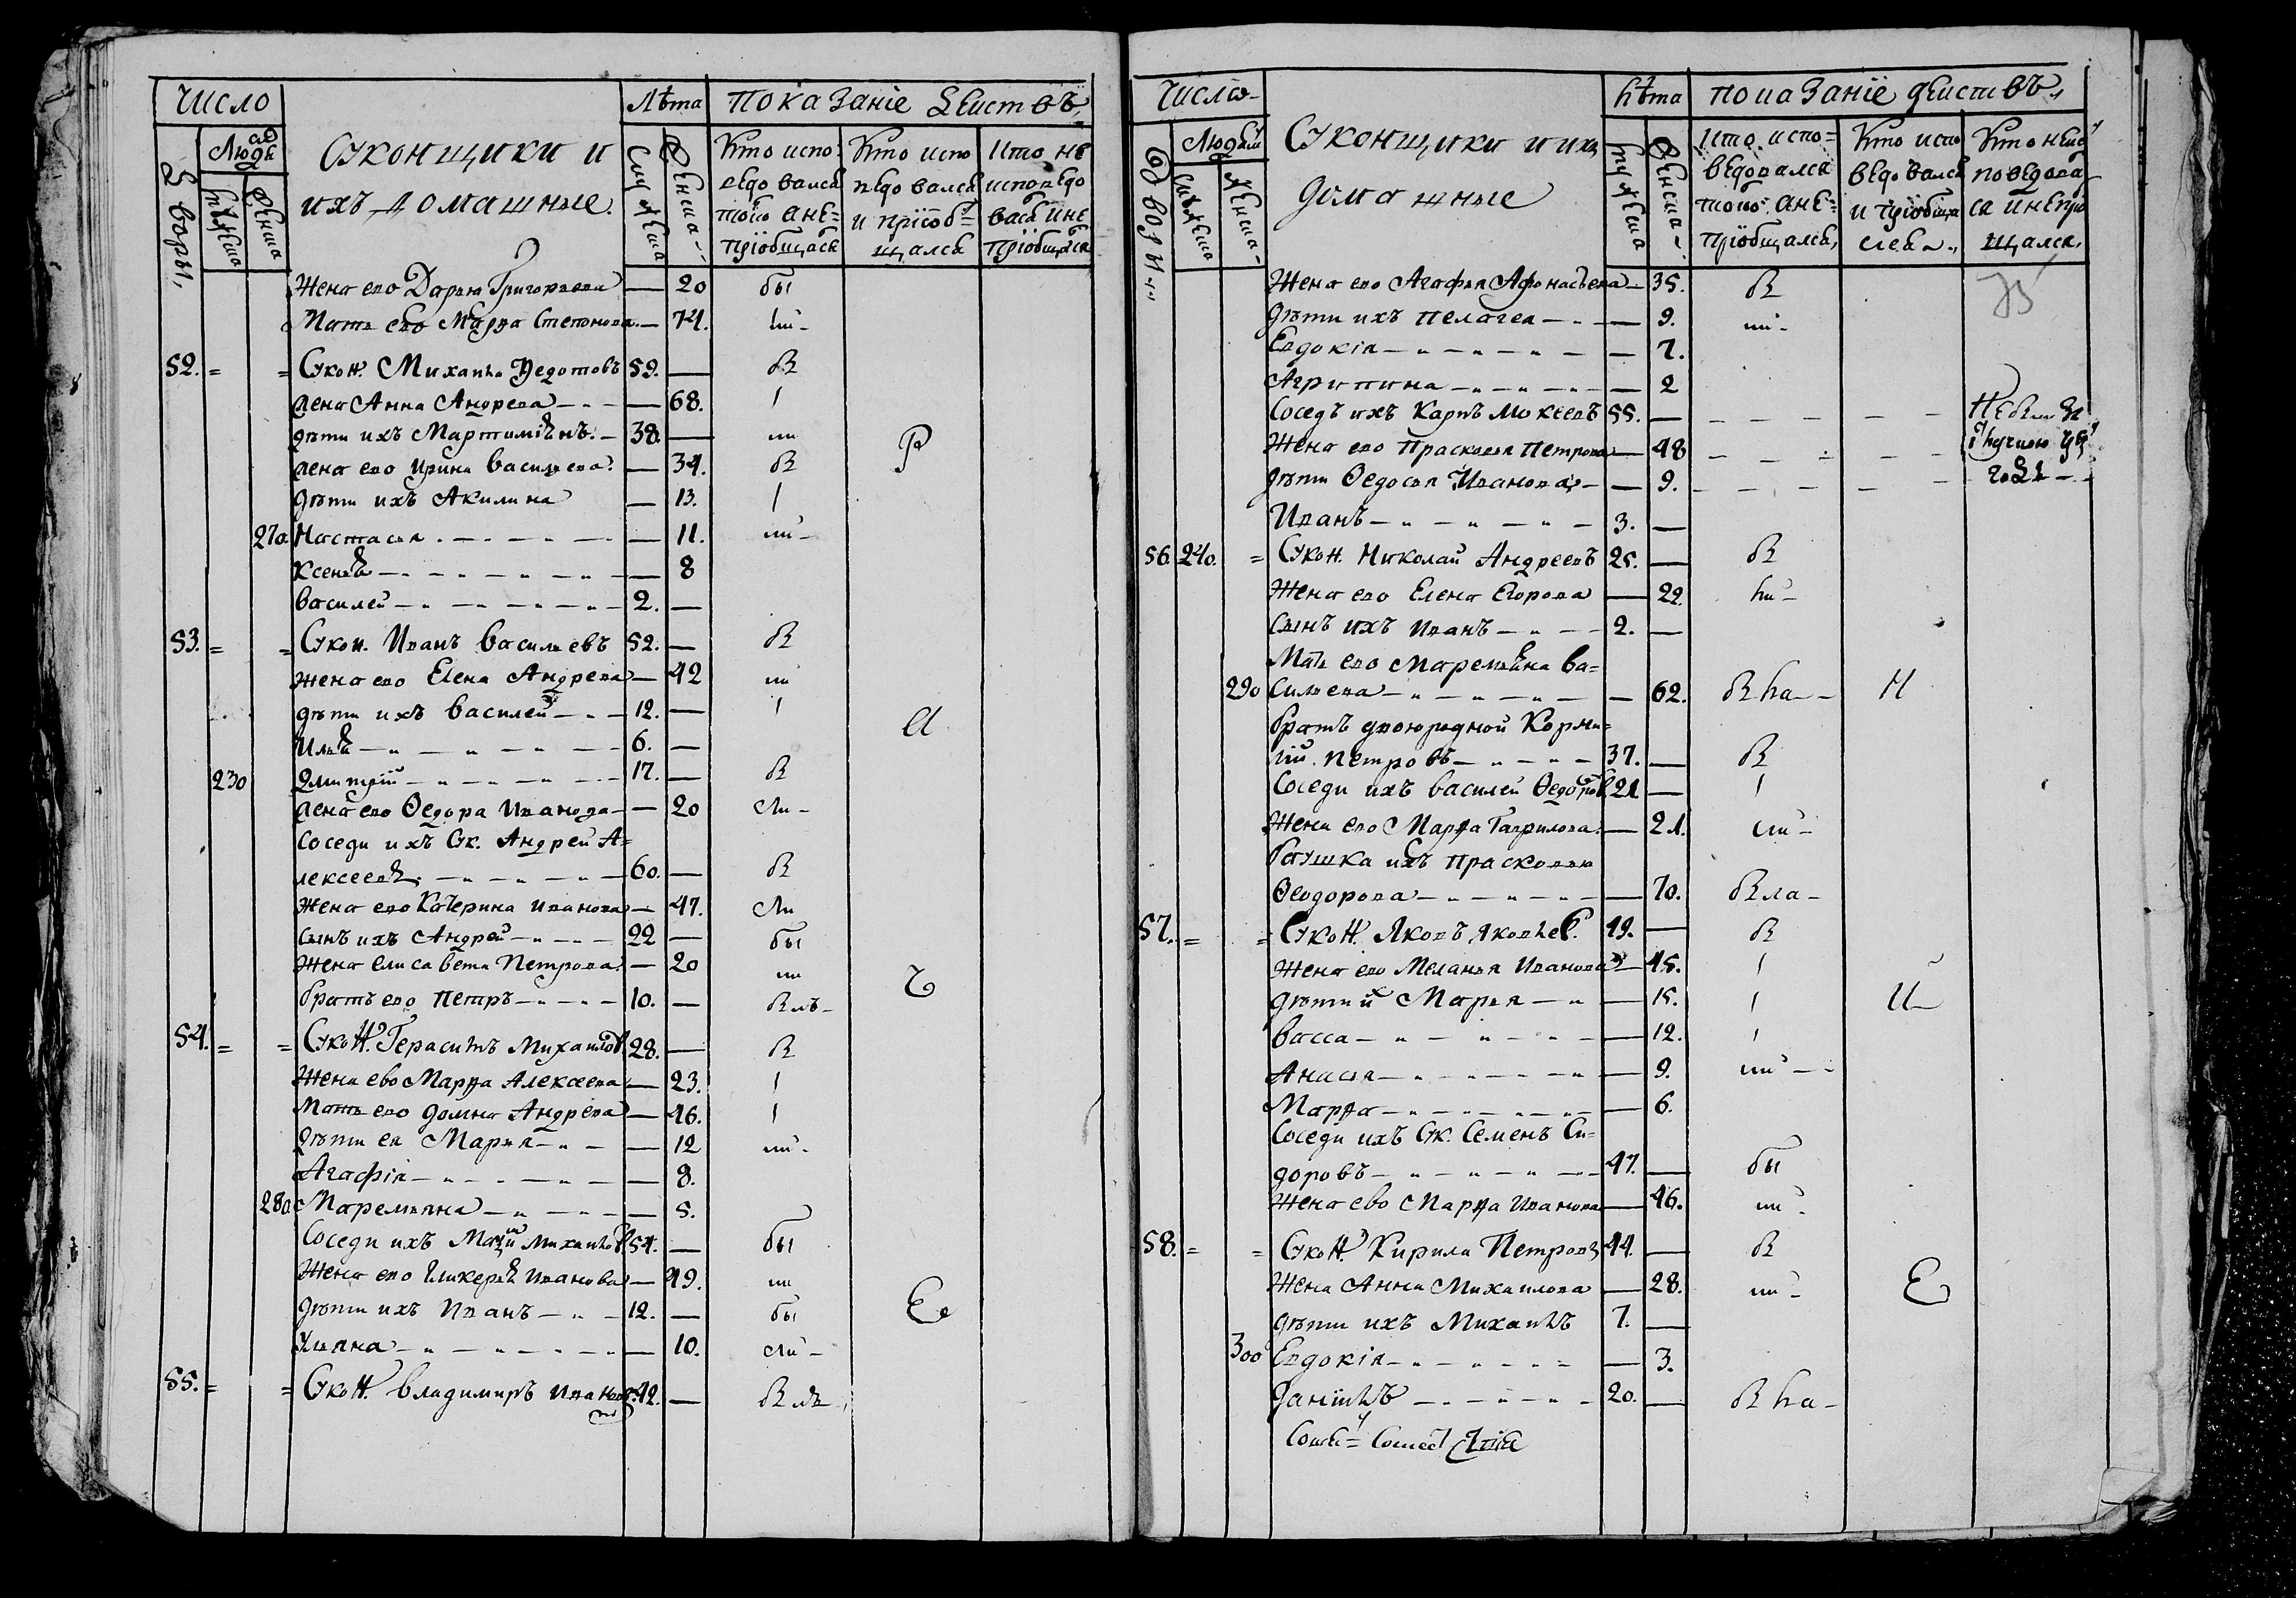 число
Людеи
Дворы
мужеска
женска
Суконщики и
ихъ домашные.
Лѣта
мужеска
женска
показаніе Действъ
Кто испо=
ведовался
токо а не=
пріобщася
Кто испо
ведовался
и пріоб=
щался
кто не
исповедо
вася и не
пріобщался
Жена ево Дарья Григорьева — 20 бы
Мать ево Марфа Степанова — 74. ли -
52. = = Сукон. Михаила Федотовъ 59. — В
жена Анна Андрева — 68.
дѣти ихъ Мартимьянъ. — 38. — ли Р
жена ево Ирина Васильева. — 34. В
дѣти ихъ Акилина — 13.
270 Настасья — 11. ли
Ксенья — 8
Василей — 2. —
53. = = Сукон. Иванъ Васильевъ 52. — В
Жена ево Елена Андрева — 42 ли
дѣти ихъ Василей — 12. —
Илья — 6. —
230 Дмитрій — 17. — В
жена ево Федора Иванова — 20 Ли -
Соседи ихъ Сук. Андрей А=
лексеевъ — 60. — В
Жена ево Катерина Иванова — 47. Ли
сынъ ихъ Андрей — 22 — бы
Жена Елисавета Петрова — 20 ли
братъ ево Петръ — 10. — Влъ -
54. = = Сукон. Герасимъ Михаиловъ 28. — В
Жена ево Марфа Алексеева — 23.
Мать ево Домна Андрева — 46.
дѣти ея Марья — 12 ли
Агафія — 8.
280 Маремьяна — 5.
Соседи ихъ Михаиловъ 54. — бы
Жена ево Гликерья Иванова — 49. ли
дѣти ихъ Иванъ — 12. — бы Е
Ульяна — 10. Ли -
55. = = Сукон. Владимиръ Ивановъ 42. — В лъ
число
Людеи
Дворы
мужеска
женска
Суконщики и ихъ
домашные
Лѣта
мужеска
женска
показаніе действъ
кто испо=
ведовался
токо а не=
пріобщался
Кто испо
ведовался
и пріобща
лся
Кто не ис
поведова
ся и не пріо
щался
Жена ево Агафья Афонасьева — 35. В
дѣти ихъ Пелагея — 9. ли -
Евдокія — 7.
Агрипина — 2
Соседъ ихъ Карпъ Мокеевъ 55. —
Жена ево Прасковья Петрова — 48
дѣти Федосья Иванова — 9.
Иванъ — 3. —
56. 240. = Сукон. Николай Андреевъ 25. — В
Жена ево Елена Егорова — 22. ли -
Сынъ ихъ Иванъ — 2. —
Мать ево Маремьяна Ва=
290 сильева — 62. В ла - Н
братъ двоюродной Корни=
лій Петровъ — 37. — В
Соседи ихъ Василей Федоровъ 21 —
Жена ево Марфа Гаврилова — 21. ли -
бабушка ихъ Прасковья
Феодорова — 70. В ла -
57. = = Сукон. Яковъ Яковлев. 49. — В
Жена ево Меланья Иванова — 45.
дѣти их Марья — 15.
Васса — 12.
Анасья — 9. ли
Марфа — 6.
Соседи ихъ Сук. Семенъ Си=
доровъ — 47. — бы
Жена ево Марфа Иванова — 46. ли
58. = = Сукон. Кирила Петровъ 44. — В
Жена Анна Михаилова — 28. ли - Е
дѣти ихъ Михаилъ 7. —
300 Евдокія — 3.
Даніилъ — 20. — В ла -